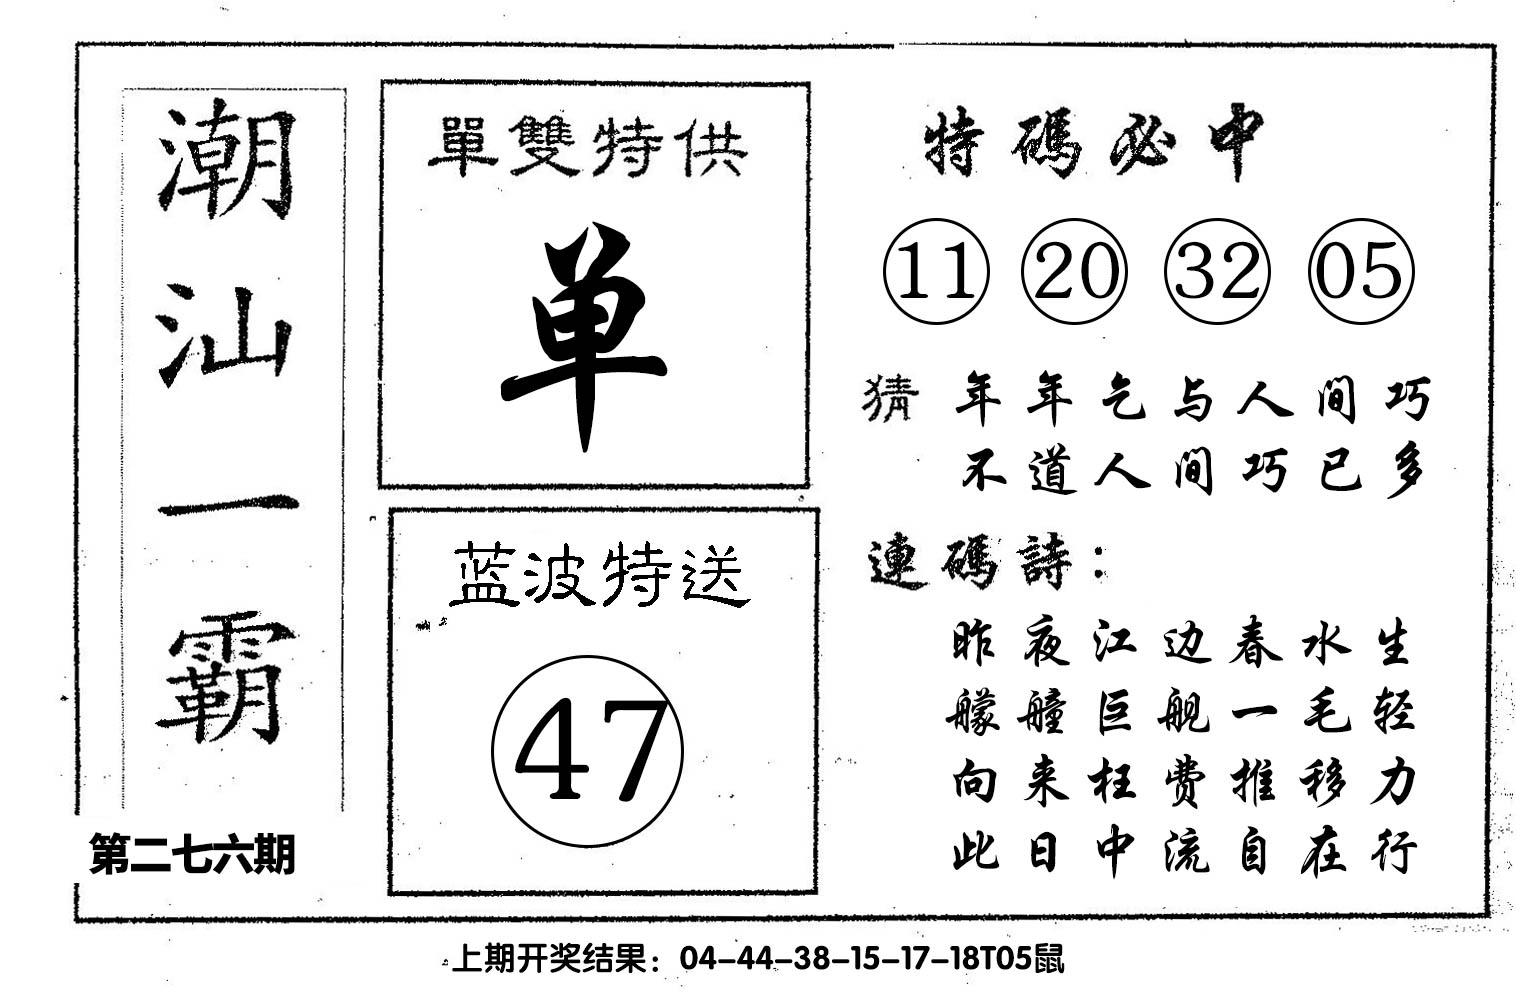 潮汕一霸
第二七六期
單雙特供
单
蓝波特送
47
特碼必中
11 20 32 05
猜 年年乞与人间巧
不道人间巧已多
連碼詩：
昨夜江边春水生
艨艟巨舰一毛轻
向来枉费推移力
此日中流自在行
上期开奖结果：04-44-38-15-17-18T05鼠